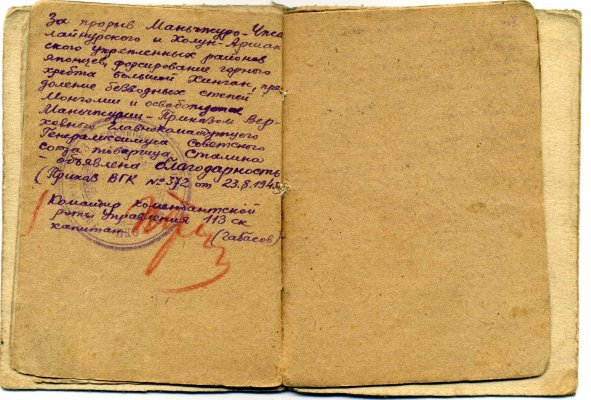 За прорыв Маньчжуро-Чжа
лайнурского и Холун-Аршан
ского укрепленных районов
японцев, форсирование горного
хребта большой Хинган, прео
доление безводных степей
Монголии и освобождение
Маньчжурии-Приказом Вер-
ховного Главнокомандующего
Генералиссимуса Советского
союза товарища Сталина
- объявлена благодарность
(Приказ ВГК № 372 от 23.8.1945
Командир комендантской
роты Управления 113 ск
капитан (Габасов)